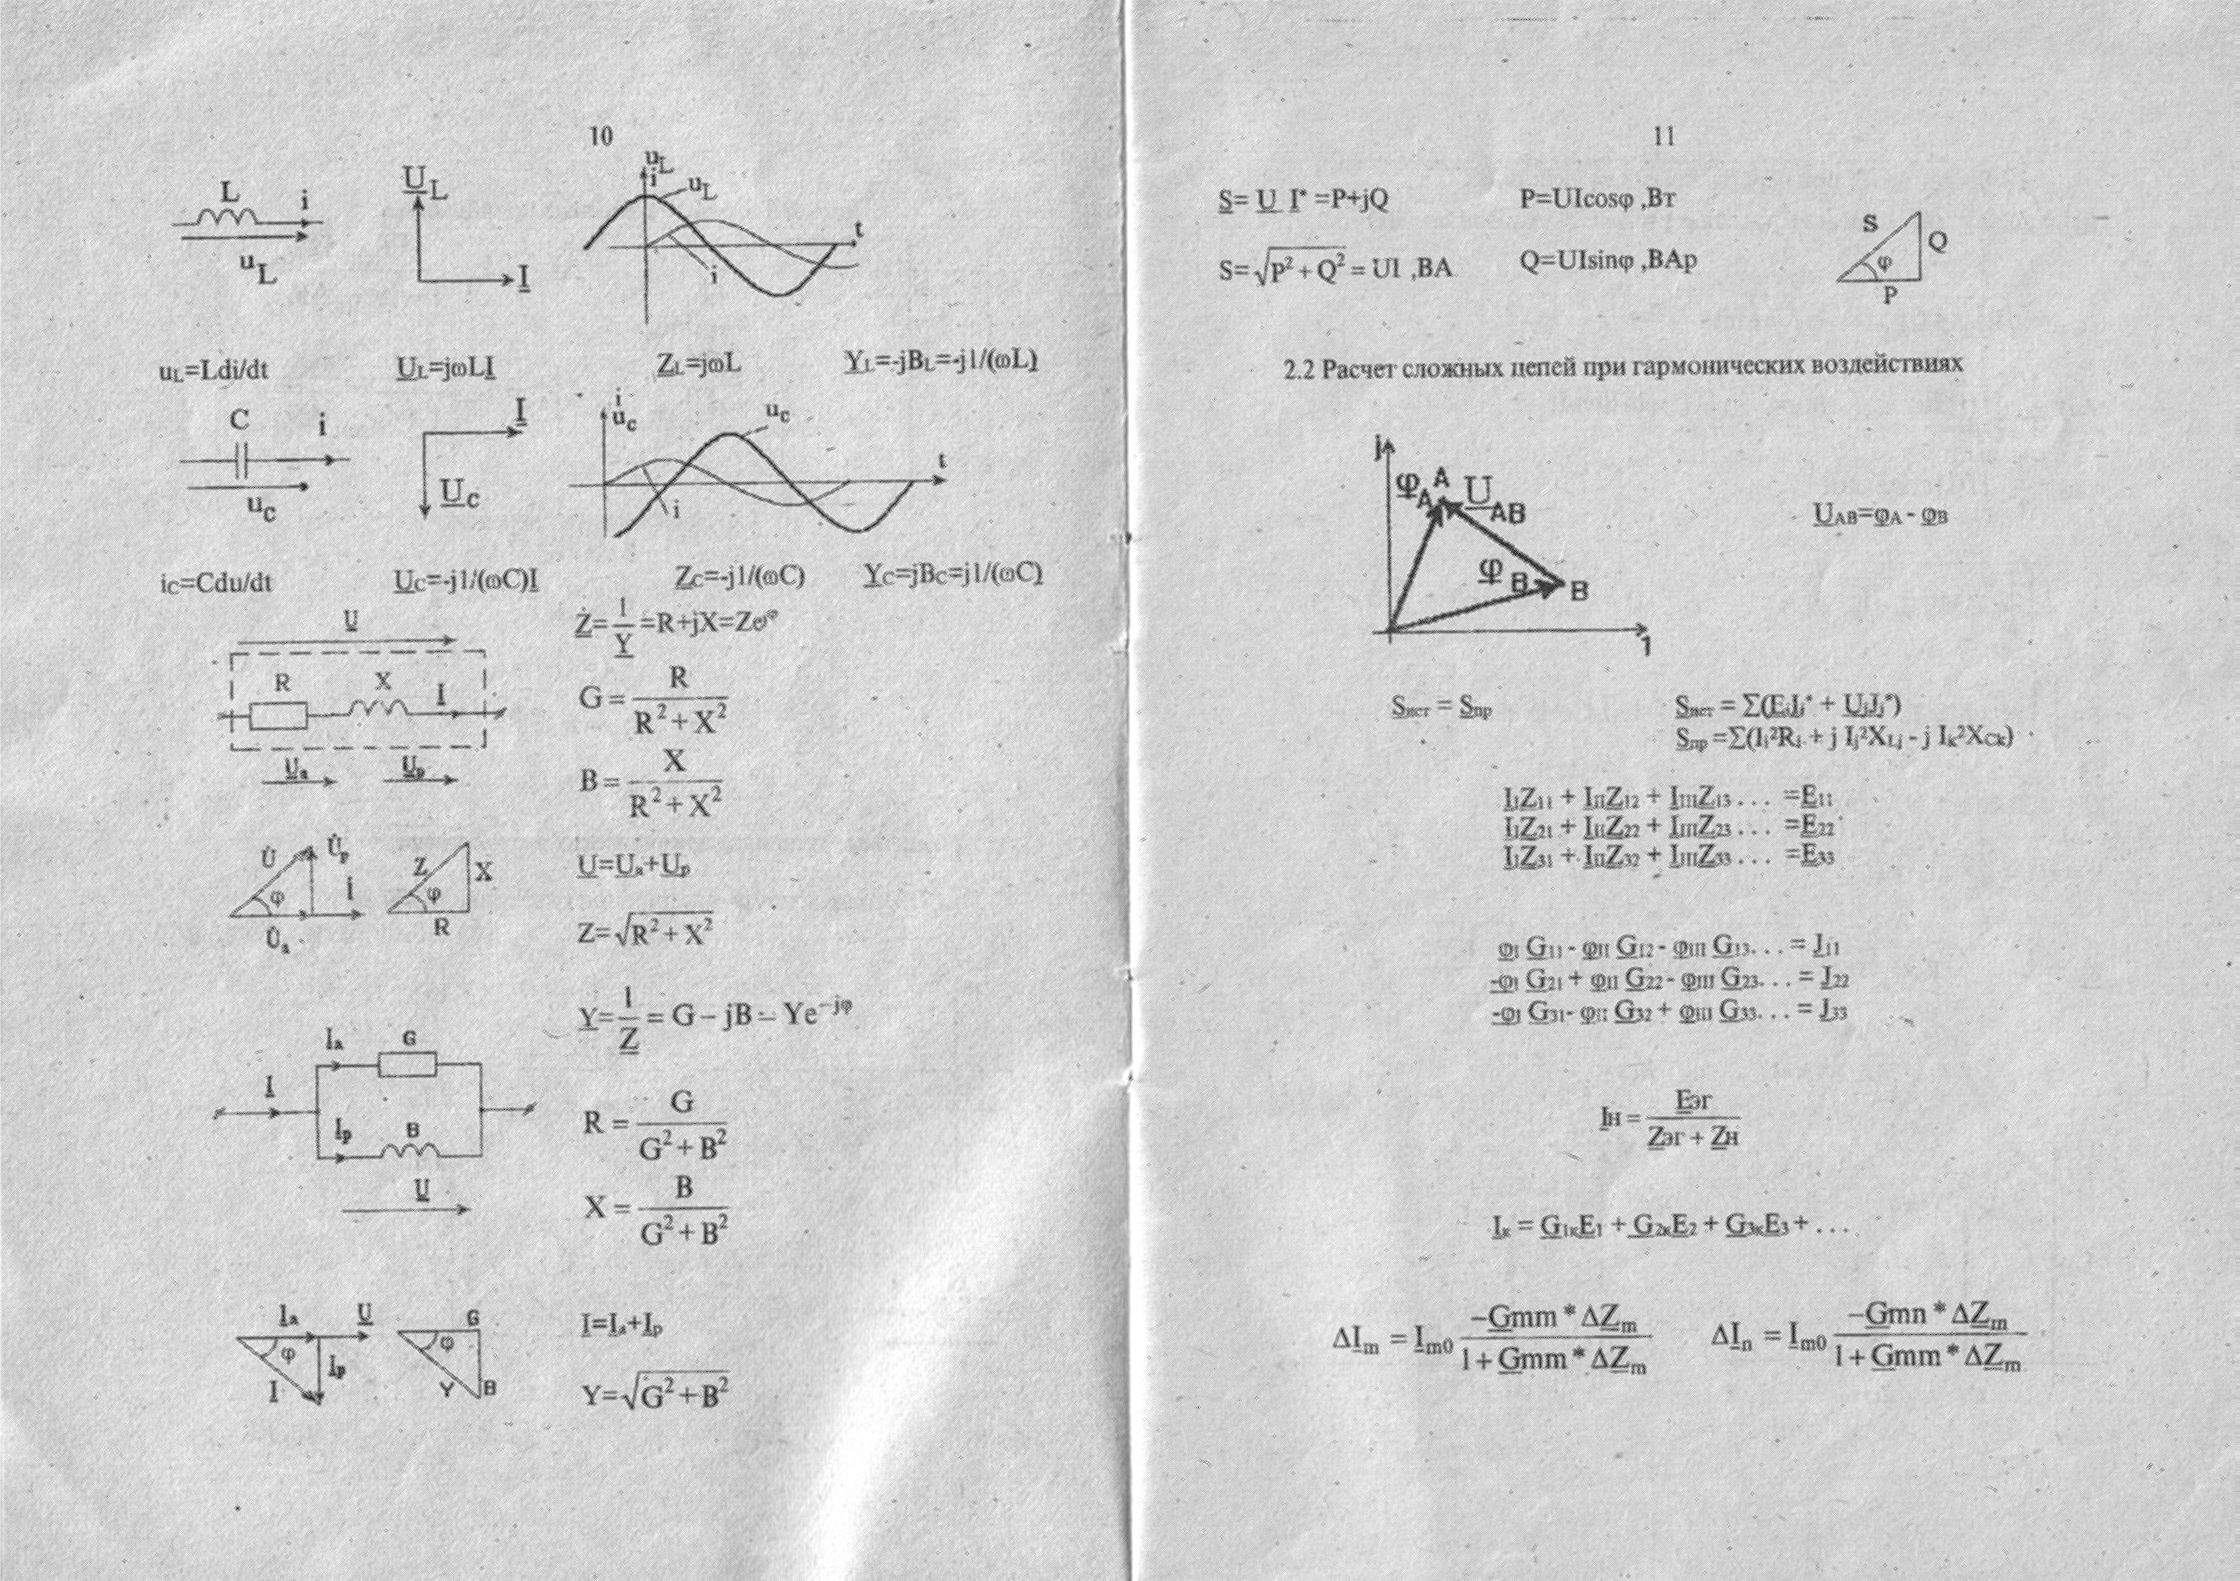 10
L i u_L
U_L I
u_L i u_L i t
u_L=Ldi/dt U_L=jωLI Z_L=jωL Y_L=-jB_L=-j1/(ωL)
C i u_C
I U_C
i u_C u_C i t
i_C=Cdu/dt U_C=-j1/(ωC)I Z_C=-j1/(ωC) Y_C=jB_C=j1/(ωC)
U
R X I
U_a U_p
Z=1/Y=R+jX=Ze^jφ
G=R/(R²+X²)
B=X/(R²+X²)
U̇ U̇_p φ İ U̇_a
Z X φ R
U=U_a+U_p
Z=√(R²+X²)
Y=1/Z=G-jB=Ye^-jφ
I_a G
I
I_p B
U
R=G/(G²+B²)
X=B/(G²+B²)
I_a U φ I_p I
G φ Y B
I=I_a+I_p
Y=√(G²+B²)
11
S=U I*=P+jQ P=UIcosφ ,Вт
S=√(P²+Q²)=UI ,ВА Q=UIsinφ ,ВАр
S Q φ P
2.2 Расчет сложных цепей при гармонических воздействиях
j φ_A A U_AB φ_B B 1
U_AB=φ_A - φ_B
S_ист = S_пр S_ист = ∑(E_iI_i* + U_jJ_j*)
S_пр =∑(I_i²R_i + j I_j²X_Lj - j I_k²X_Ck)
I_IZ_11 + I_IIZ_12 + I_IIIZ_13 . . . =E_11
I_IZ_21 + I_IIZ_22 + I_IIIZ_23 . . . =E_22
I_IZ_31 + I_IIZ_32 + I_IIIZ_33 . . . =E_33
φ_I G_11 - φ_II G_12 - φ_III G_13. . . = J_11
-φ_I G_21 + φ_II G_22 - φ_III G_23. . . = J_22
-φ_I G_31 - φ_II G_32 + φ_III G_33. . . = J_33
Iн = Eэг/(Zэг + Zн)
I_к = G_1кE_1 + G_2кE_2 + G_3кE_3 + . . .
ΔI_m = I_m0 (-Gmm * ΔZ_m)/(1 + Gmm * ΔZ_m) ΔI_n = I_m0 (-Gmn * ΔZ_m)/(1 + Gmm * ΔZ_m)